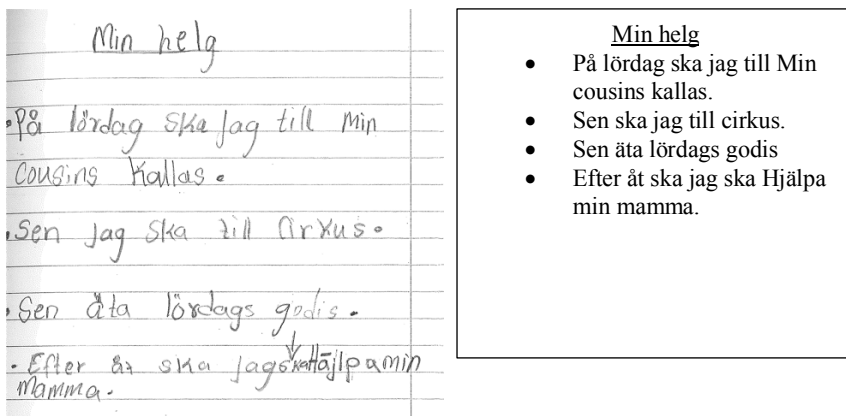 Min helg
• På lördag ska jag till Min
Cousins Kallas.
• Sen jag ska till Cirkus.
• Sen äta lördags godis.
• Efter åt ska jag ska Häjlpa min
Mamma.
Min helg
• På lördag ska jag till Min
cousins kallas.
• Sen ska jag till cirkus.
• Sen äta lördags godis
• Efter åt ska jag ska Hjälpa
min mamma.